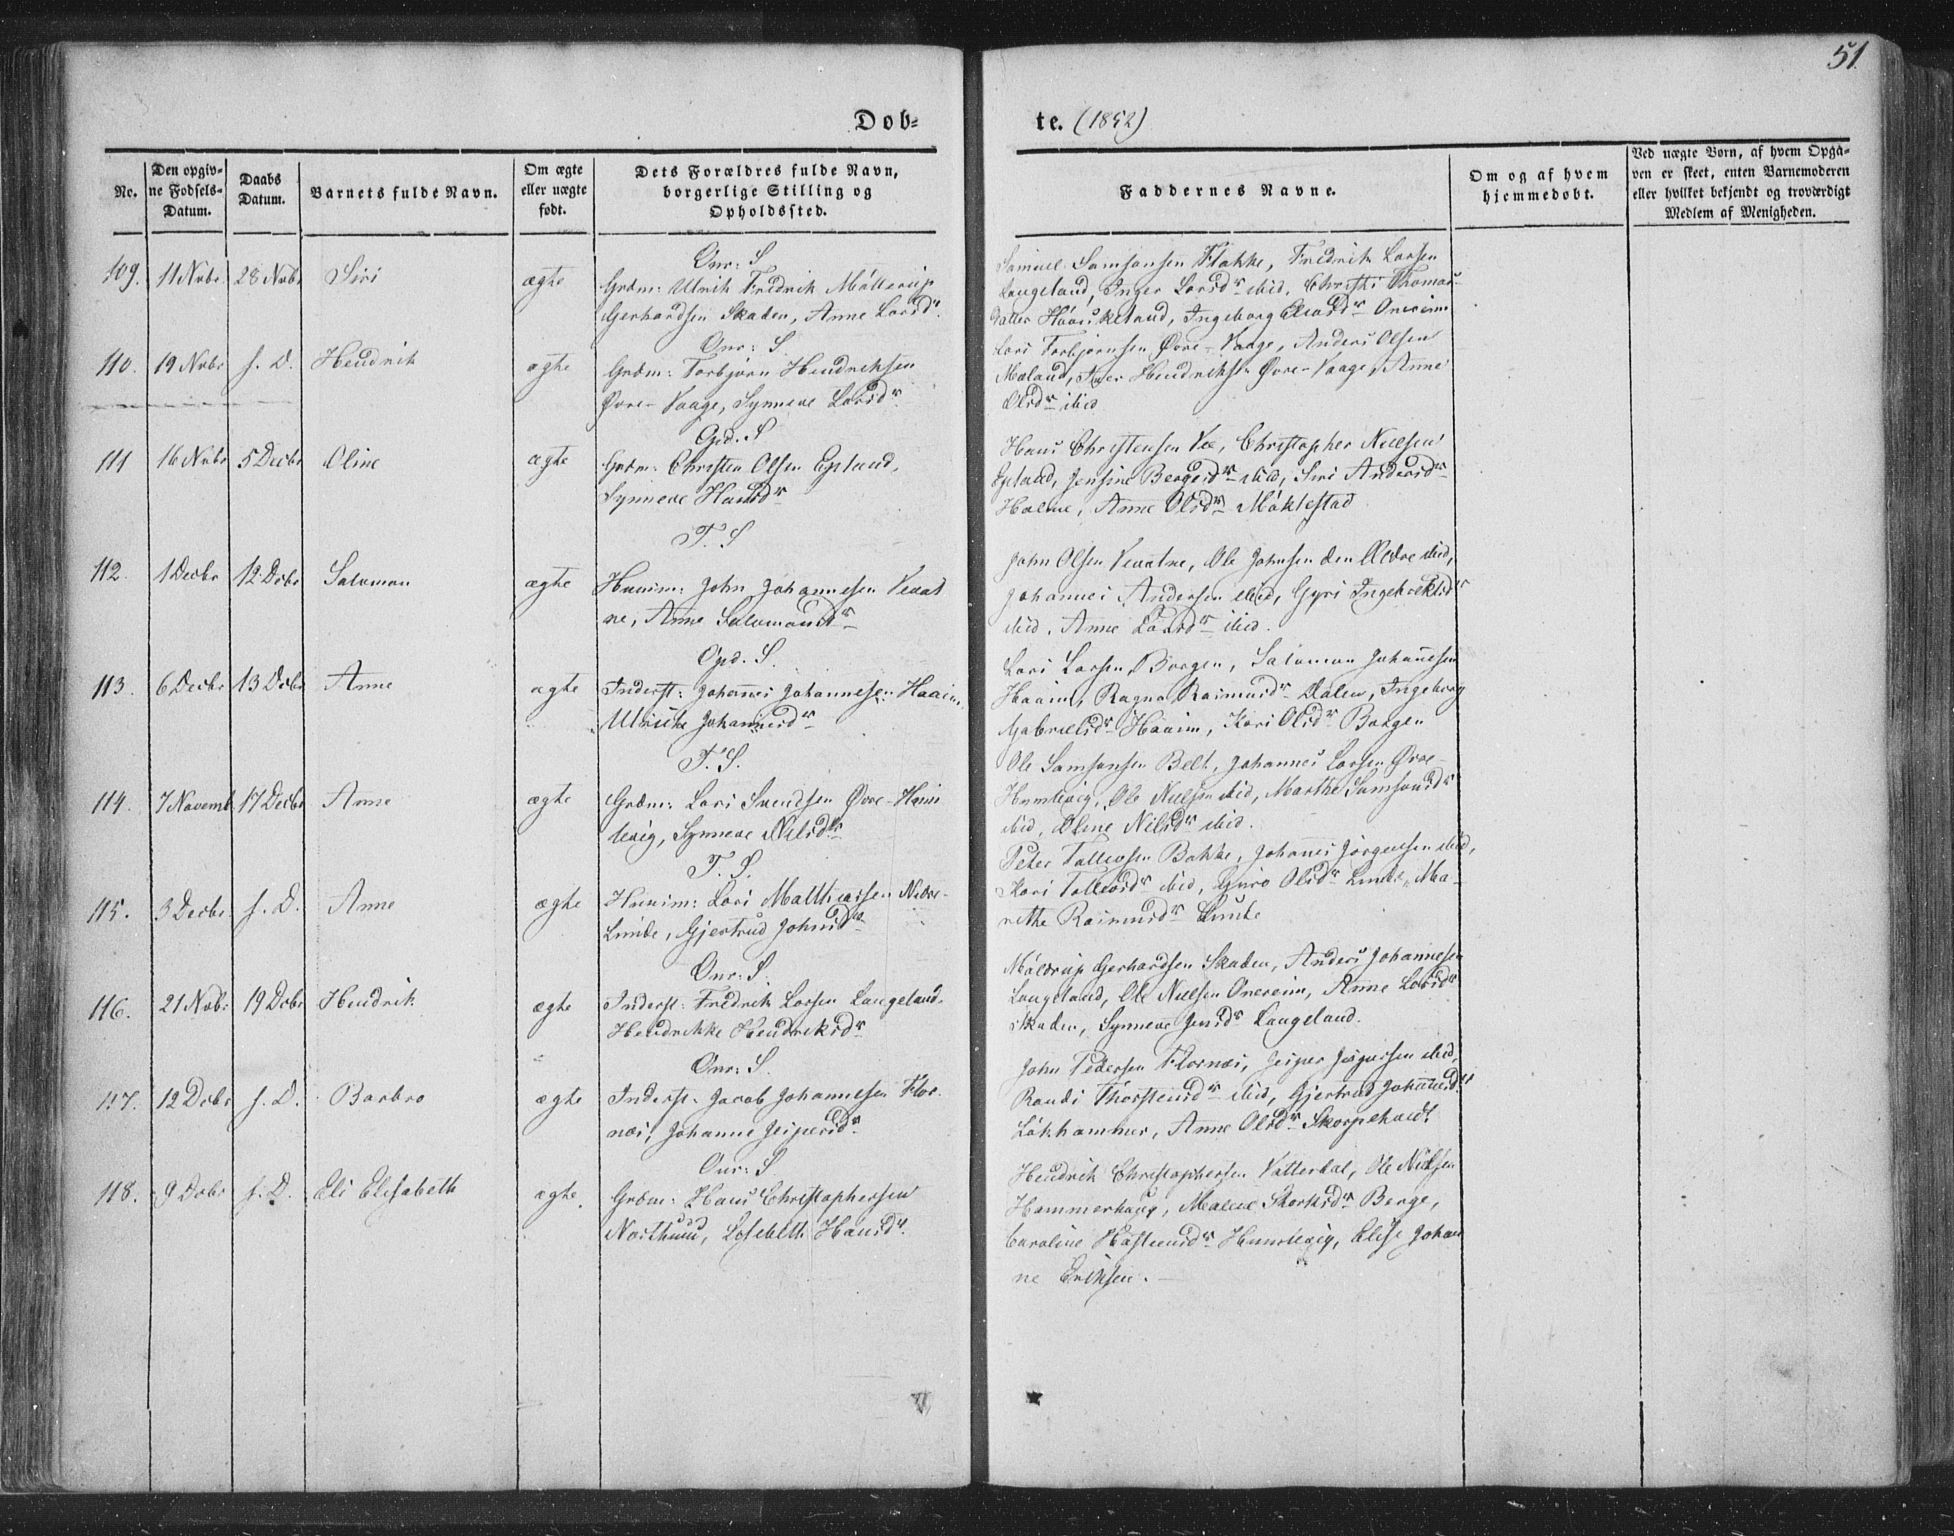 51
Døb-
te. (1852)
No.
Den opgiv-
ne Fødsels-
Datum.
Daabs
Datum.
Barnets fulde Navn.
Om ægte
eller uægte
født.
Dets Forældres fulde Navn,
borgerlige Stilling og
Opholdssted.
Faddernes Navne.
Om og af hvem
hjemmedøbt.
Ved uægte Børn, af hvem Opga-
ven er skeet, enten Barnemoderen
eller hvilket bekjendt og troværdigt
Medlem af Menigheden.
109. 11 Nvbr 28 Nvbr Siri ægte
Onr: S
Grdm: Ulrik Fredrik Møllerup
Gerhardsen Skaden, Anne Larsdr.
Samuel Samsonsen Flakke, Fredrik Larsen
Langeland, Inger Larsdr ibid, Christi Thomas-
datter Haaskeland, Ingeborg Onereim
110. 19 Nvbr s. D. Hendrik ægte
Onr: S.
Grdm: Torbjørn Hendriksen
Øvre-Vaage, Synneve Larsdr
Lars Torbjørnsen Øvre-Vaage, Anders Olsen
Mæland, Hendriksen Øvre-Vaage, Anne
Olsdr ibid
111 16 Nvbr 5 Decbr Oline ægte
Opd. S
Grdm: Christen Olsen Epland,
Synneve Hansdr
Hans Christensen Vee, Christopher Nielsen
Epland, Jensine Bergesdr ibid, Siri Andersdr
Holme, Anne Olsdr Møklestad
112. 1 Decbr 12 Dcbr Salomon ægte
T. S
Huusm: John Johannesen Vevat
ne, Anne Salomonsdr
John Olsen Vevatne, Ole Johnsen den Ældre ibid,
Johannes Andersen ibid, Gyri Ingebrektsdr
ibid, Anne Larsdr ibid.
113. 6 Decbr 13 Dcbr Anne ægte
Opd. S.
Inderst: Johannes Johannesen Haaim,
Ulrike Johannesdr
Lars Larsen Borgen, Salomon Johannesen
Haaim, Ragna Rasmusdr Dalen, Ingeborg
Gabrielsdr Haaim, Kari Olsdr Borgen
114. 7 Novemb 17 Decbr Anne ægte
T. S.
Grdm: Lars Svendsen Øvre-Hum
levig, Synneve Nilsdr
Ole Samsonsen Belt, Johannes Larsen Øvre-
Humlevig, Ole Nielsen ibid, Marthe Samsonsdr
ibid, Oline Nilsdr ibid.
115. 3 Decbr s. D. Anne ægte
T. S.
Huusm: Lars Matthiassen Nedre-
Linde, Gjertrud Johnsdr
Peter Tollevsen Bakke, Johannes Jørgensen ibid,
Kari Tollevsdr ibid, Guro Olsdr Linde, Ma-
rethe Rasmusdr Linde
116. 21 Nvbr 19 Dcbr Hendrik ægte
Onr: S.
Inderst: Fredrik Larsen Langeland.
Hendrikke Hendriksdr
Møllerup Gerhardsen Skaden, Anders Johannesen
Langeland, Ole Nielsen Onereim, Anne Larsdr
Skaden, Synneve Jensdr Langeland.
117. 12 Dcbr s. D. Barbro ægte
Onr: S.
Inderst: Jacob Johannesen Flor-
næs, Johanne Jespersdr
John Pedersen Flornæs, Jesper Jespersen ibid,
Randi Thorsteinsdr ibid, Gjertrud Johannesdr
Løkhammer, Anne Olsdr Skorpeholdt
118. 9 Dcbr s. D. Eli Elisabeth ægte.
Onr: S
Grdm: Hans Christophersen
Northuud, Lisebeth Hansdr.
Hendrik Christophersen Vatterdal, Ole Nielsen
Hammerhaug, Malene Skorksdr Berge,
Caroline Humlevig, Elise Johan
ne Eriksen. —